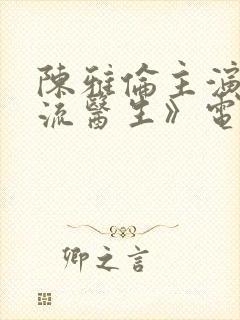 陳雅倫主演
流醫生》電
卿之言